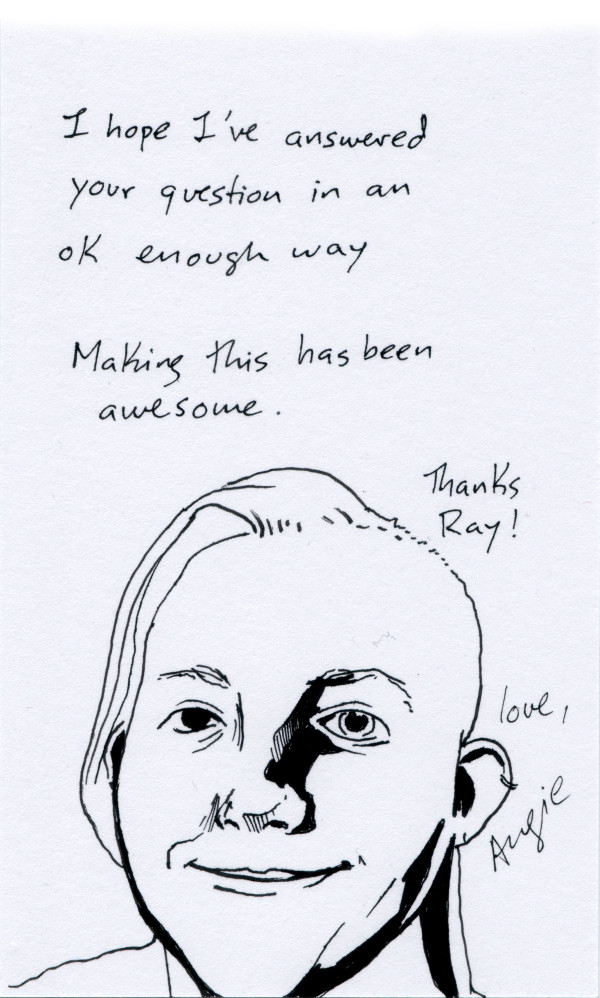 I hope I've answered
your question in an
ok enough way
Making this has been
awesome.
Thanks
Ray!
love,
Angie